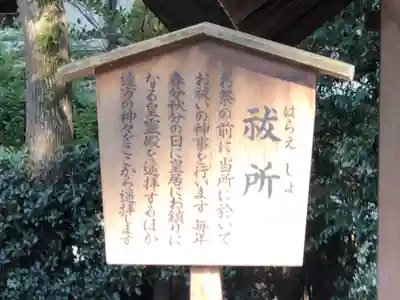 祓所
はらえ しょ
お祭の前に当所に於いて
お祓いの神事を行います 毎年
春分秋分の日に皇居にお鎮りに
なる皇霊殿を遥拝するほか
遠方の神々をここから遥拝します